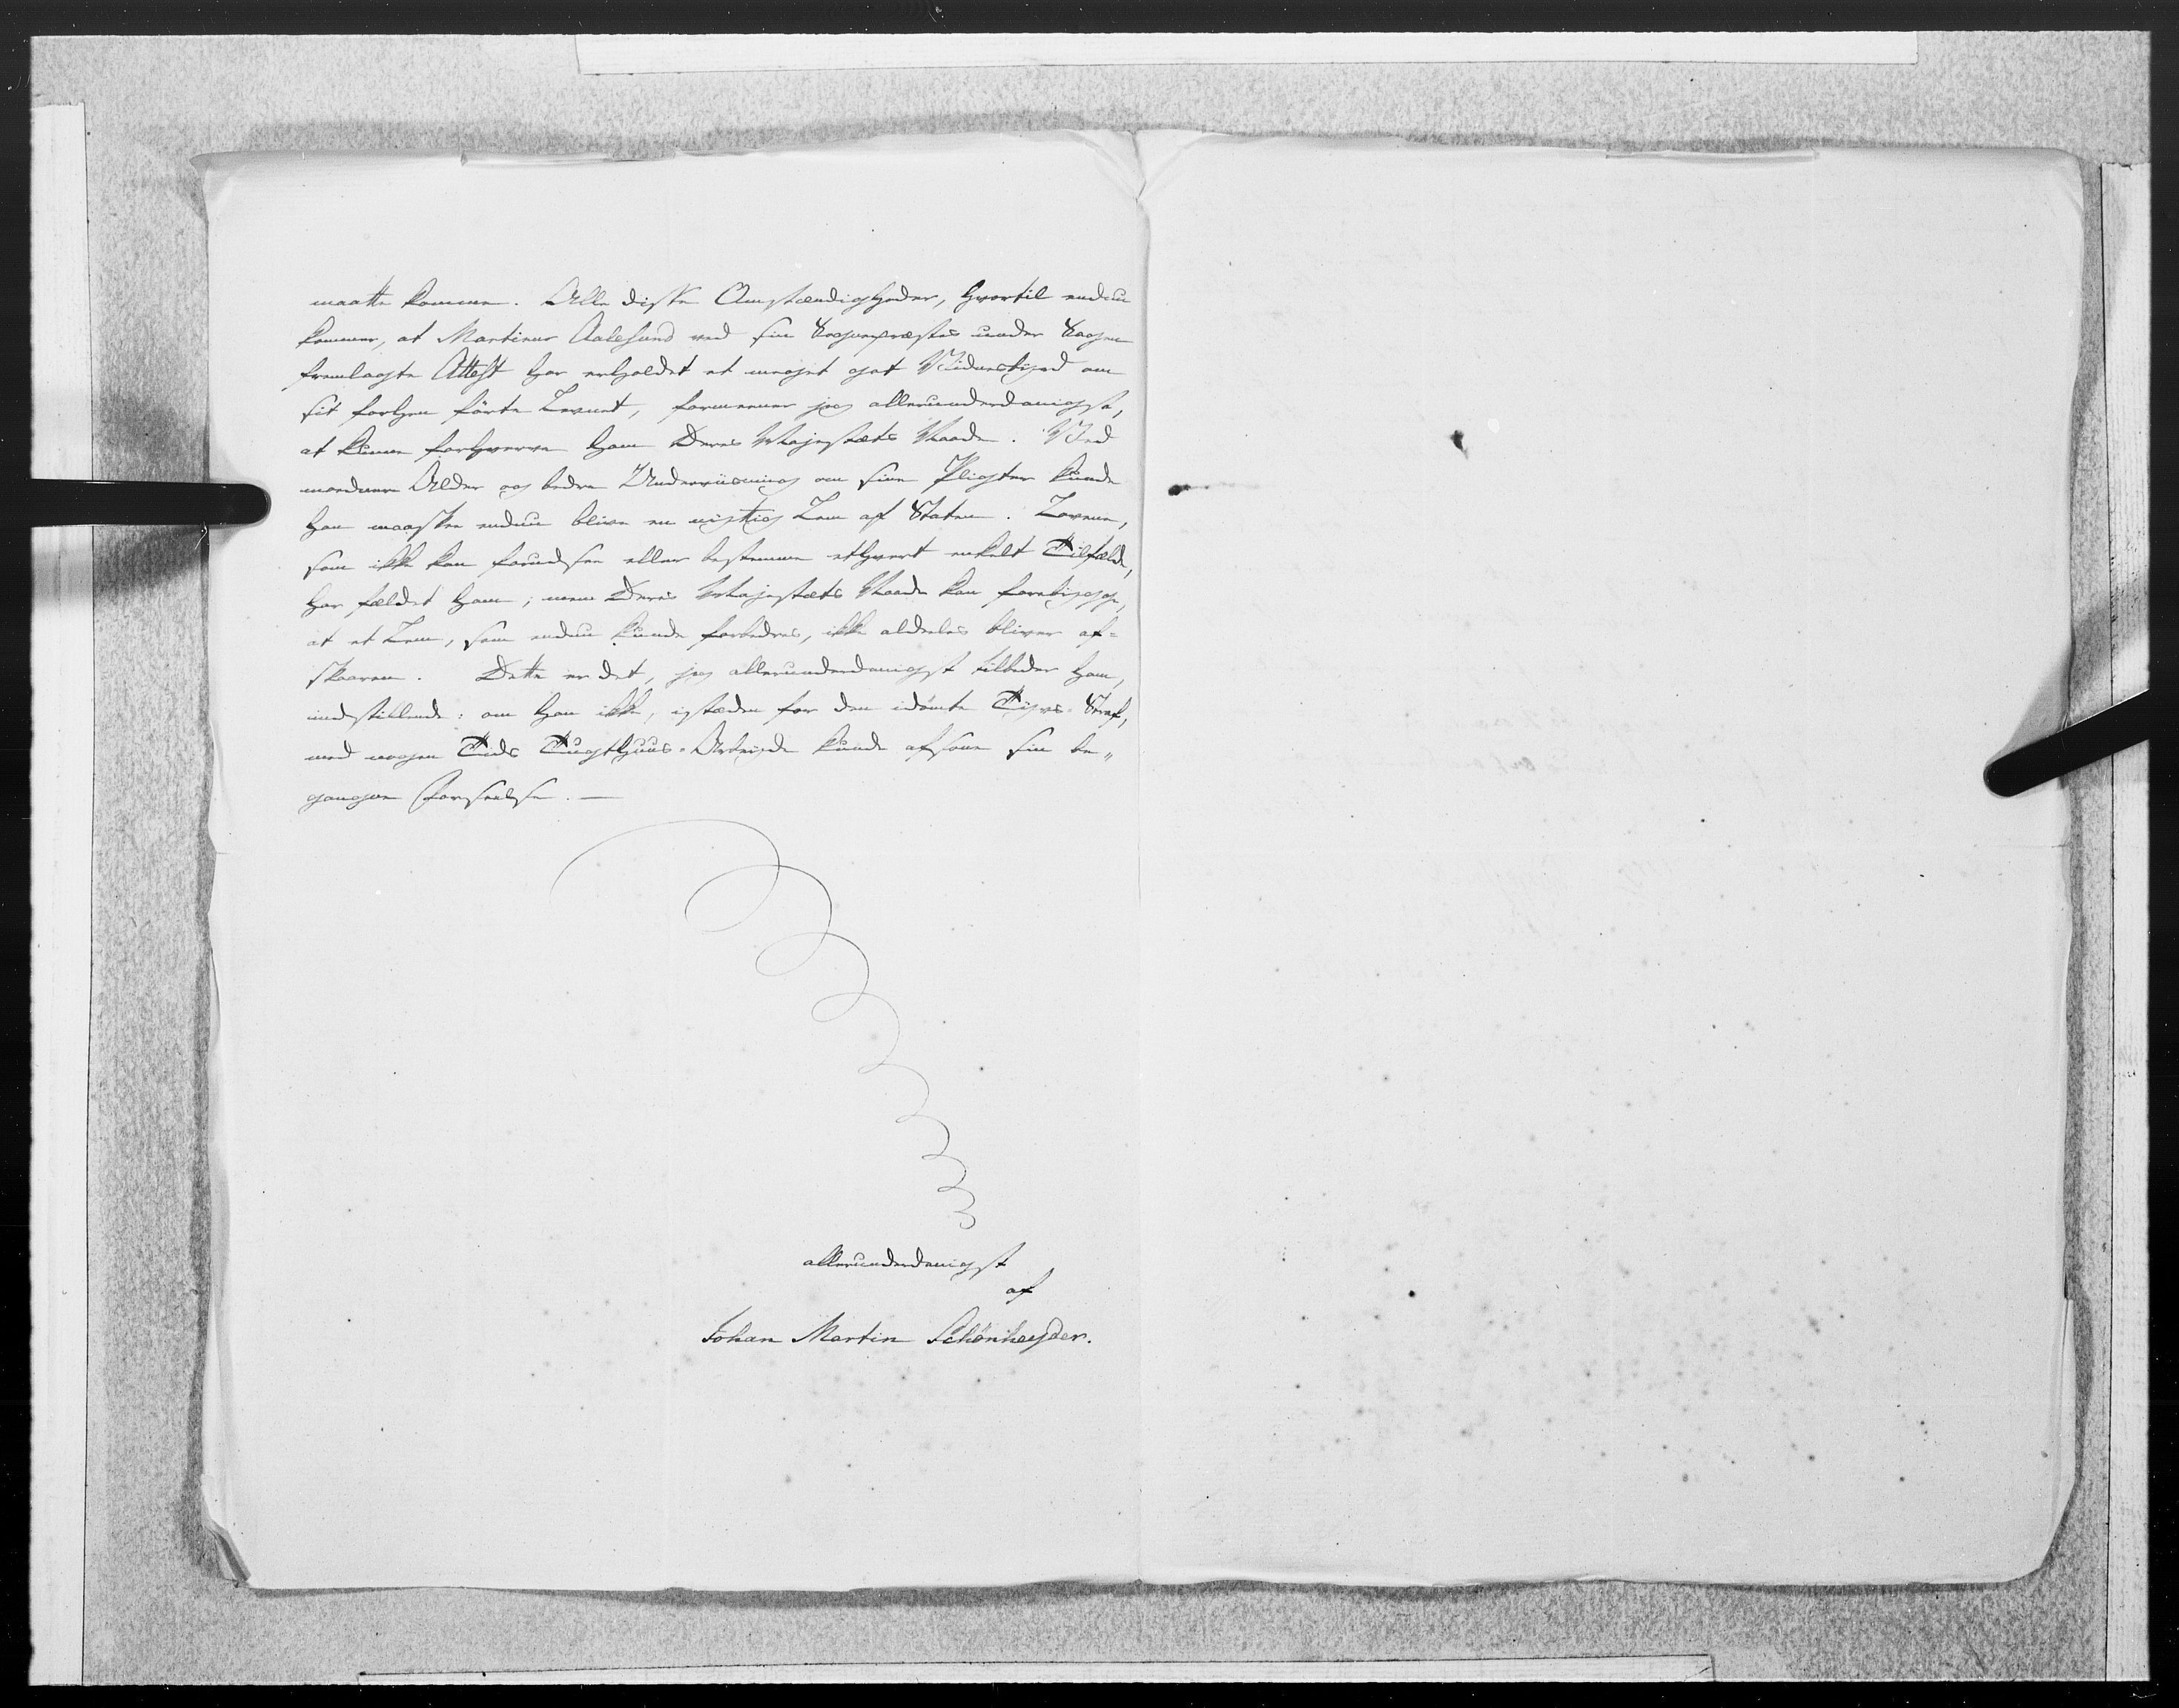 maatte komme. Alle disse Omstændigheder, hvortil endnu
kommer, at Martinus Aalesund ved sin Sognepræstes under Sagen
fremlagte Attest har erholdet et meget got Vidnesbyrd om
sit forhen förte Levnet, formener jeg allerunderdanigst,
at kunne forhverve ham Deres Majestæts Naade. Med
moednere Alder og bedre Underviisning om sine Pligter kunde
han maaskee endnu blive en nyttig Lem af Staten. Lovene,
som ikke kan forudsee eller bestemme ethvert enkelt Tilfælde,
har fældet ham; men Deres Majestæts Naade kan forebygge,
at et Lem, som endnu kunde forbedres, ikke aldeles bliver af-
skaaren. Dette er det, jeg allerunderdanigst tilbeder ham,
indstillende: om han ikke, istæden for den idömte Tyvs-Straf,
med nogen Tids Tugthuus-Arbeyde kunde afsone sin be-
gangne Forseelse. —
allerunderdanigst
af
Johan Martin Schönheyder.